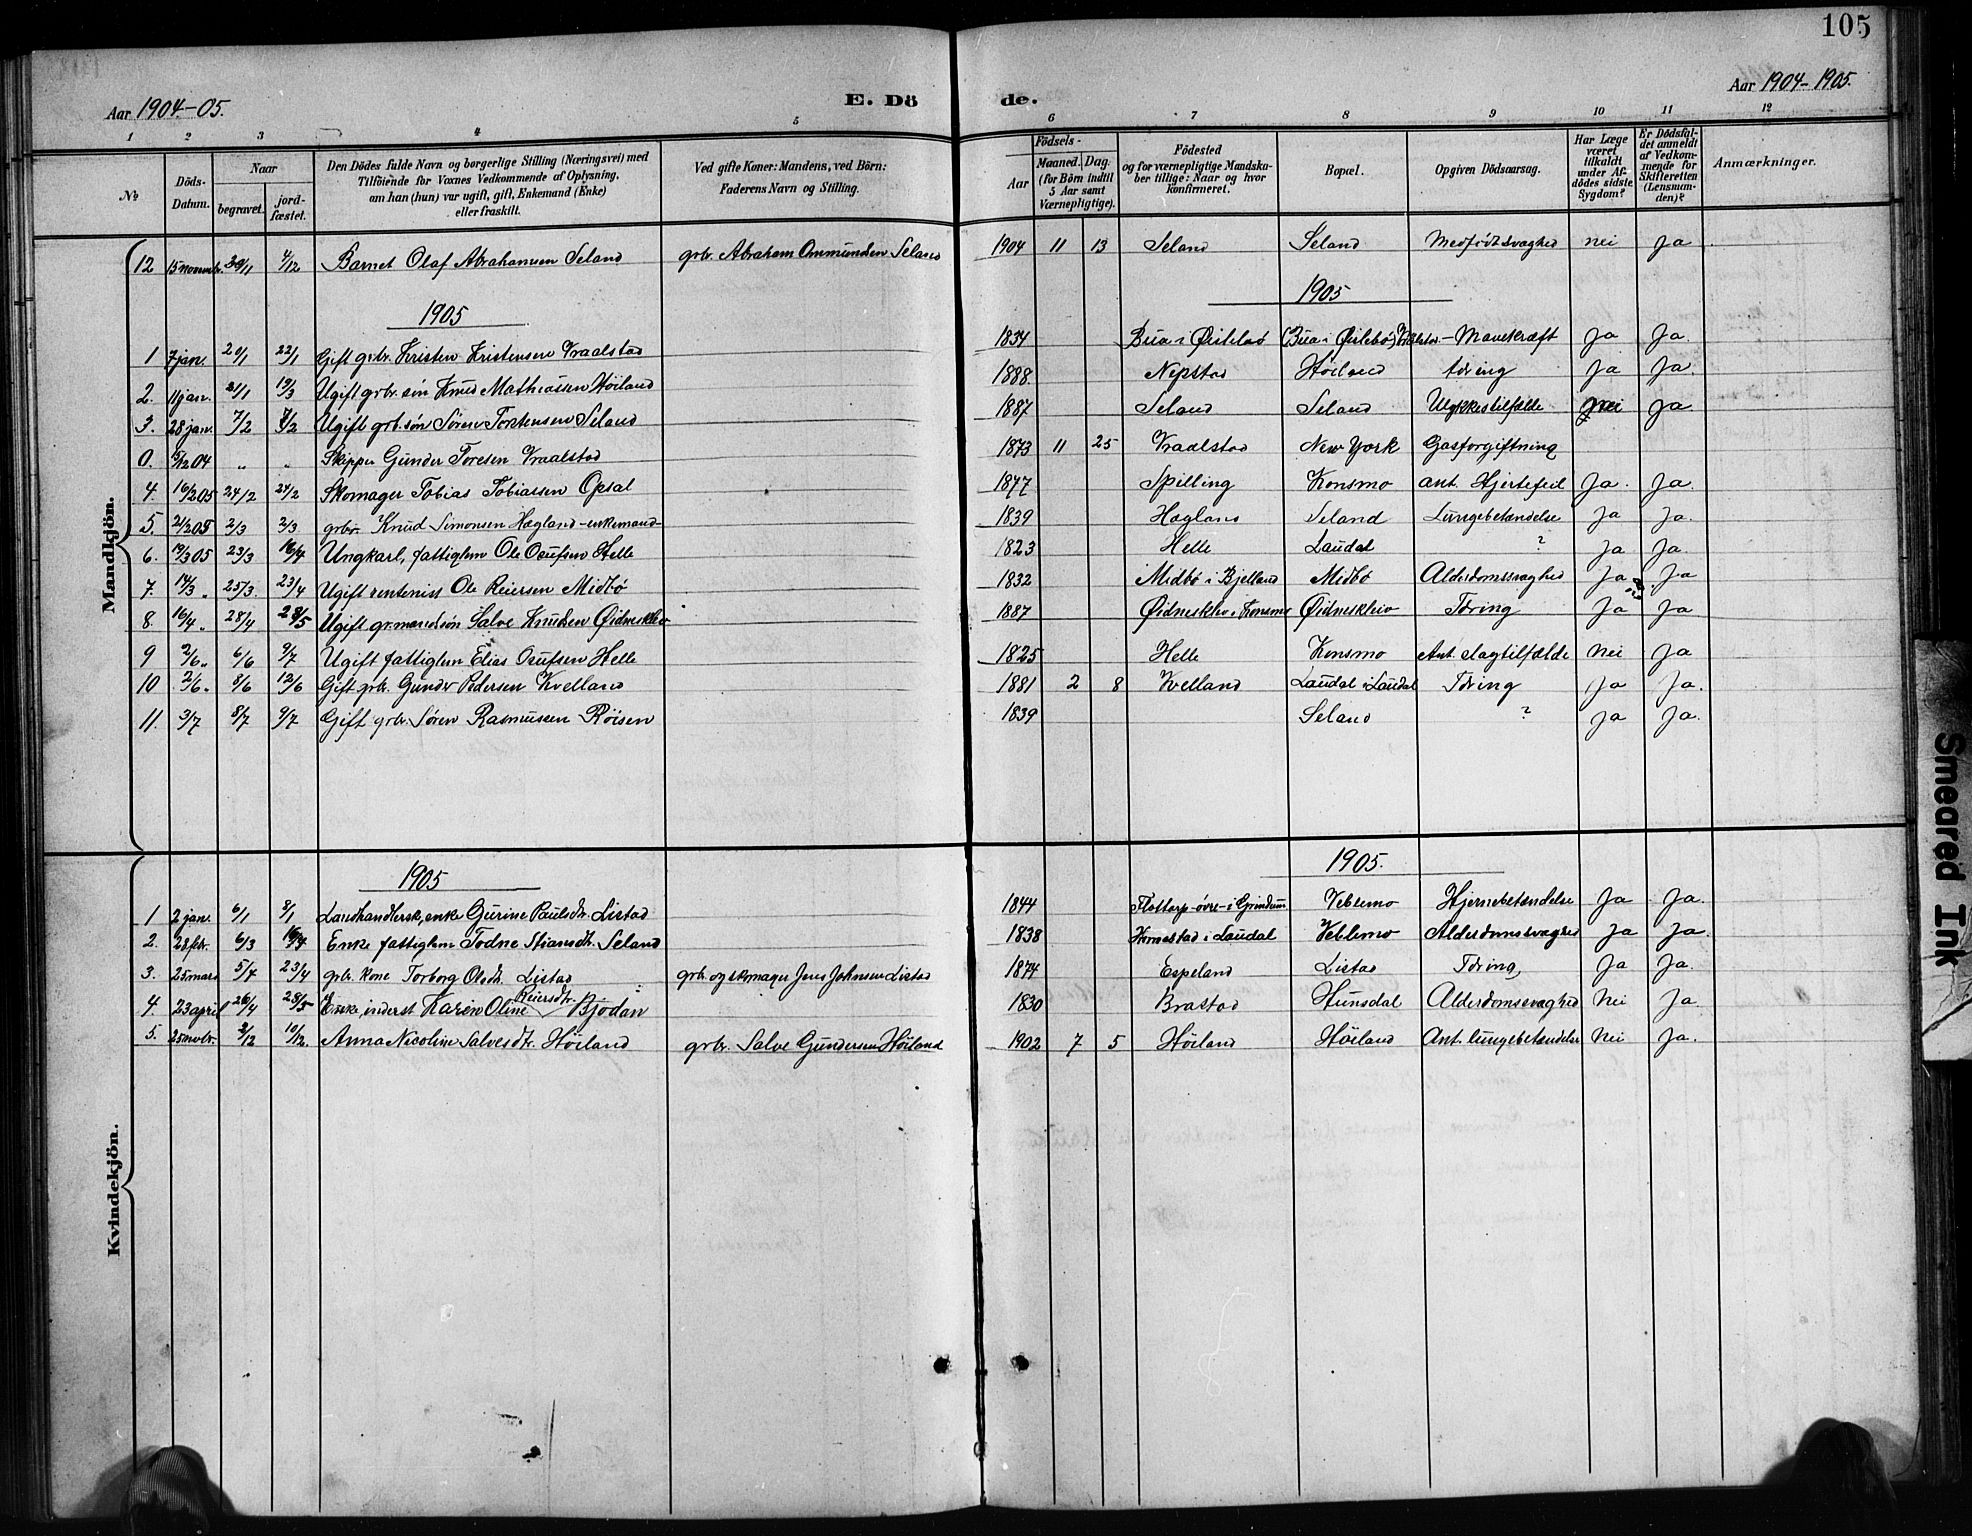 105
Aar 1904.-05. E. Dö de. Aar 1904-1905.
1 2 3 4 5 6 7 8 9 10 11 12
№ Döds-Datum. Naar begravet. jordfæstet. Den Dödes fulde Navn og borgerlige Stilling (Næringsvei) med Tilföiende for Voxnes Vedkommende af Oplysning, om han (hun) var ugift, gift, Enkemand (Enke) eller fraskilt. Ved gifte Koner: Mandens, ved Börn: Faderens Navn og Stilling. Födsels- Aar Maaned. Dag. (for Börn indtil 5 Aar samt Værnepligtige). Födested og for værnepligtige Mandskaber tillige: Naar og hvor konfirmeret. Bopæl. Opgiven Dödsaarsag. Har Læge været tilkaldt under Afdödes sidste Sygdom? Er Dödsfaldet anmeldt af Vedkommende for Skifteretten (Lensmanden)? Anmærkninger.
Mandkjön.
12 15 novembr. 4/12 Barnet Olaf Abrahamsen Seland grbr. Abraham Ommundsen Seland 1904 11 13 Seland Seland Medfødt svaghed nei ja
1905 1905
1 7 jan. 20/1 22/1 Gift grbr. Kristen Kristensen Vraalstad 1834 Bua i Øislebø (Bua i Øislebø) Mavekræft Ja Ja
2. 11 jan. 21/1 19/3 Ugift grbr. søn Knud Mathiassen Höiland 1888. Nepstad Höiland tæring ja Ja.
3. 28 jan. 7/2 7/2 Ugift grbr. søn Sören Torstensen Seland 1887 Seland Seland Ulykkestilfælde nei ja
0. 5/12 04 " " Skipper Gunder Toresen Vraalstad 1873 11 25 Vraalstad New York Gasforgiftning
4. 16/2 05 24/2 24/2 Skomager Tobias Tobiassen Opsal 1877 Spilling Konsmo ant. Hjertefeil Ja. Ja.
5. 21/2 05 2/3 2/3 grbr. Knud Simonsen Hægland - enkemand - 1839 Hægland Seland Lungebetændelse Ja Ja.
6. 19/3 05 23/3 16/4 Ungkarl, fattiglem Ole Osufsen Helle 1823 Helle Laudal ? ja Ja.
7. 14/3 " 25/3. 23/4 Ugift rentenist Ole Reiersen Midbö 1832 Midbö i Bjelland Midbö Alderdomssvaghed Ja Ja
8. 16/4 " 28/4 28/5 Ugift gr.mandssön Salve Knudsen Øidneskleiv 1887 Øidneskleiv i Konsmo Øidneskleiv Tæring Ja Ja
9 2/6 " 6/6 9/7 Ugift fattiglem Elias Osufsen Helle 1825 Helle Konsmo Ant. slagtilfælde Nei Ja
10 2/6 " 8/6 12/6 Gift grbr. Gunder Pedersen Kvelland 1881 2 8 Kvelland Laudal i Laudal Tæring Ja Ja.
11. 3/7 8/7 9/7 Gift grbr. Sören Rasmussen Röisen 1839 Seland ? Ja Ja.
Kvindekjön.
1905 1905.
1 2 janv. 6/1 8/1 Landhandlersk, enke Gurine Paulsdtr. Listad 1844 Flottorp - övre - i Grindum Veblemo Hjernebetændelse Ja Ja.
2. 28 febr. 6/3 16/4 Enke fattiglem Todne Stiansdtr. Seland 1838 Homestad i Laudal Veblemo Alderdomssvaghed Ja Ja
3. 25 mars 5/4 23/4 grbr. kone Torborg Olsdtr. Listad grbr. og skomager Jens Johnsen Listad 1874 Espeland Listad Tæring, Ja Ja.
4. 23 april 26/4 28/5 Enke, inderst Karen Oline Reiersdtr. Bjodan 1830 Brastad Hunsdal Alderdomssvaghed Nei Ja
5. 25 novbr. 2/12 10/12. Anna Nicoline Salvesdtr. Höiland grbr. Salve Gundersen Höiland 1902 7 5 Höiland Höiland Ant. lungebetændelse Nei Ja.
Smeared Ink